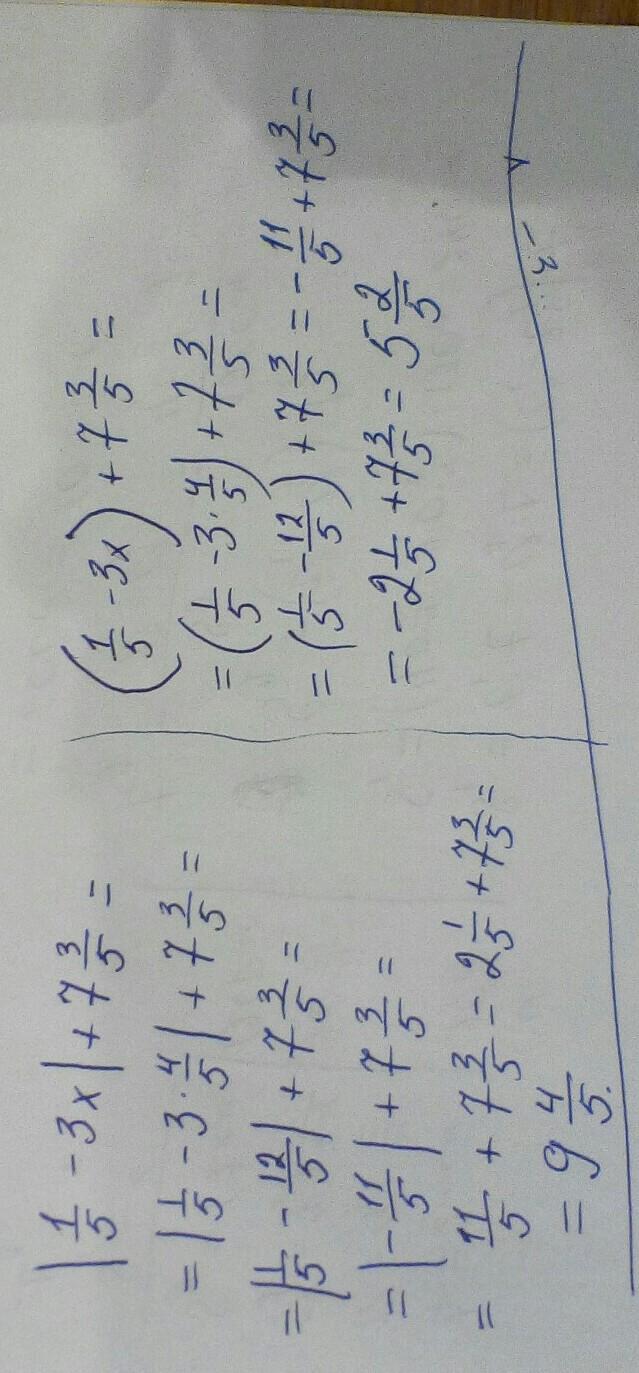 |1/5 - 3x| + 7 3/5 =
= |1/5 - 3·4/5| + 7 3/5 =
= |1/5 - 12/5| + 7 3/5 =
= |-11/5| + 7 3/5 =
= 11/5 + 7 3/5 = 2 1/5 + 7 3/5 =
= 9 4/5.
(1/5 - 3x) + 7 3/5 =
= (1/5 - 3·4/5) + 7 3/5 =
= (1/5 - 12/5) + 7 3/5 = -11/5 + 7 3/5 =
= -2 1/5 + 7 3/5 = 5 2/5